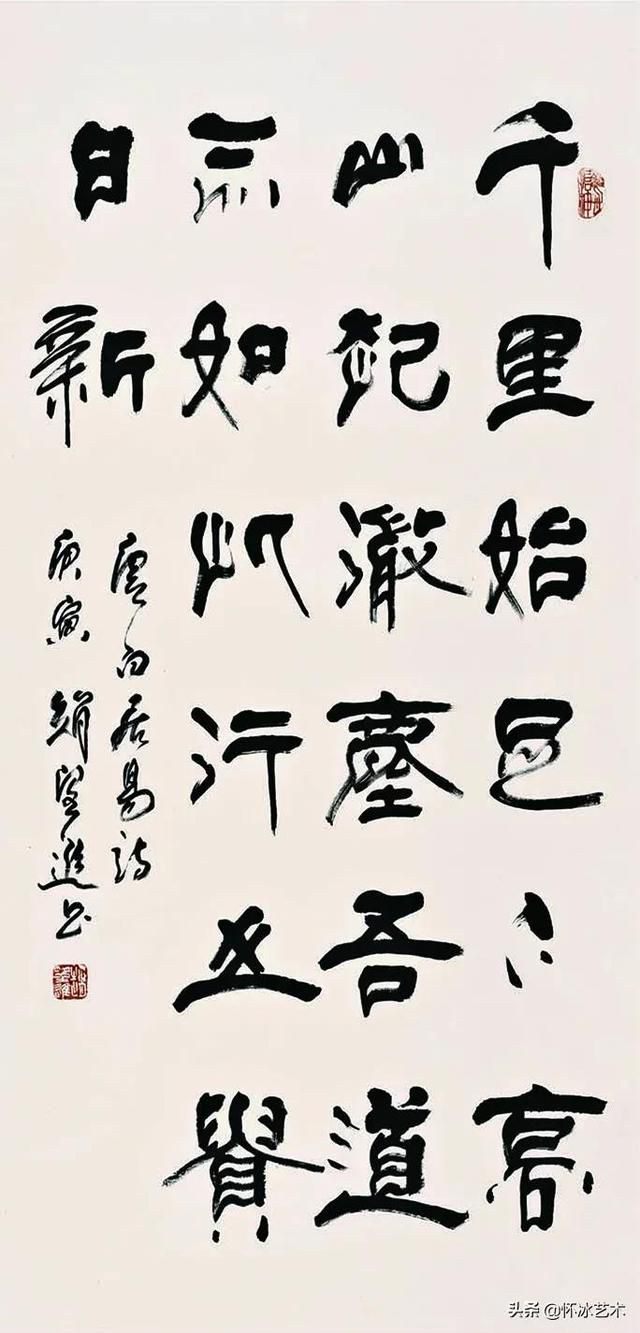 千里始足下高
山起微塵吾道
亦如此行之貴
日新
唐白居易詩
庚寅趙望進书
头条 @怀冰艺术